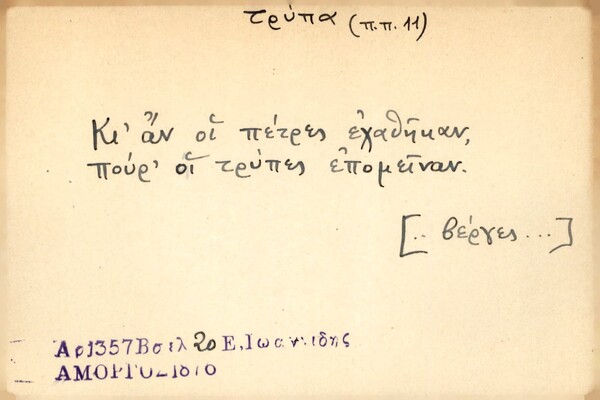 τρύπα (π.π. 11)
Κι' ἂν οἱ πέτρες ἐχαθῆκαν,
πούρ' οἱ τρύπες ἐπομεῖναν.
[.. βέργες ...]
Αρ1357Βσελ 20 Ε,Ιωαννιδης
ΑΜΟΡΓΟΣ1876